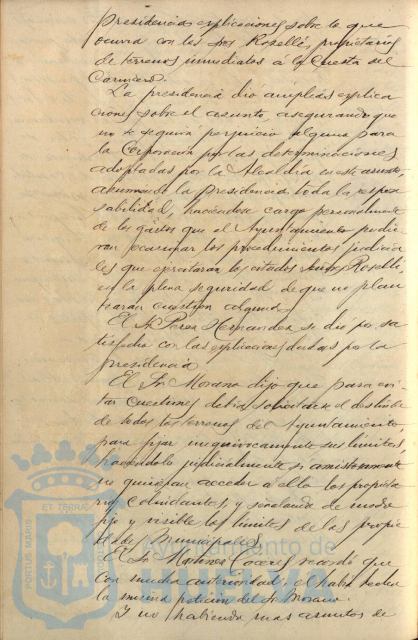 presidencias esplicaciones sobre lo que
ocurria con los Sres Roselló, propietarios
de terrenos inmediatos á la Cuesta del
Carnicero.
La presidencia dio amplias esplica
ciones sobre el asunto, asegurando que
no se seguiria perjuicio alguno para
la Corporación por las determinaciones
adoptadas por la Alcaldia en este asunto
asumiendo la presidencia toda la respon
sabilidad, haciendose cargo personalmente
de los gastos que al Ayuntamiento pudie
ran ocasionar los procedimientos judicia
les que ejercitaran los citados Sres Roselló,
en la plena seguridad de que no plan
tearan cuestion alguna.
El Sr Perez Hernandez se dió por sa
tisfecho con las esplicaciones dadas por la
presidencia.
El Sr Morano dijo que para evi
tar cuestiones debia solicitarse el deslinde
de todos los terrenos del Ayuntamiento,
para fijar inequivocamente sus limites,
haciendolo judicialmente si amistosamente
no quisieran acceder á ello los propieta
rios colindantes, y señalando de modo
fijo y visible los limites de las propie
dades Municipales.
El Sr Martinez recordó que
con mucha anterioridad, el habia hecho
la misma peticion del Sr Morano.
Y no habiendo mas asuntos de
PORTUS MARIS
ET TERRAE
Ayuntamiento de